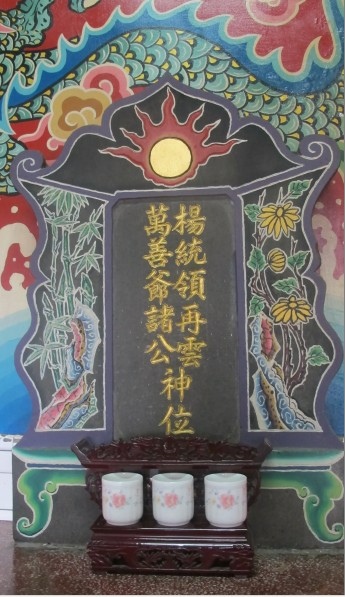 揚統領再雲
萬善爺諸公
神位